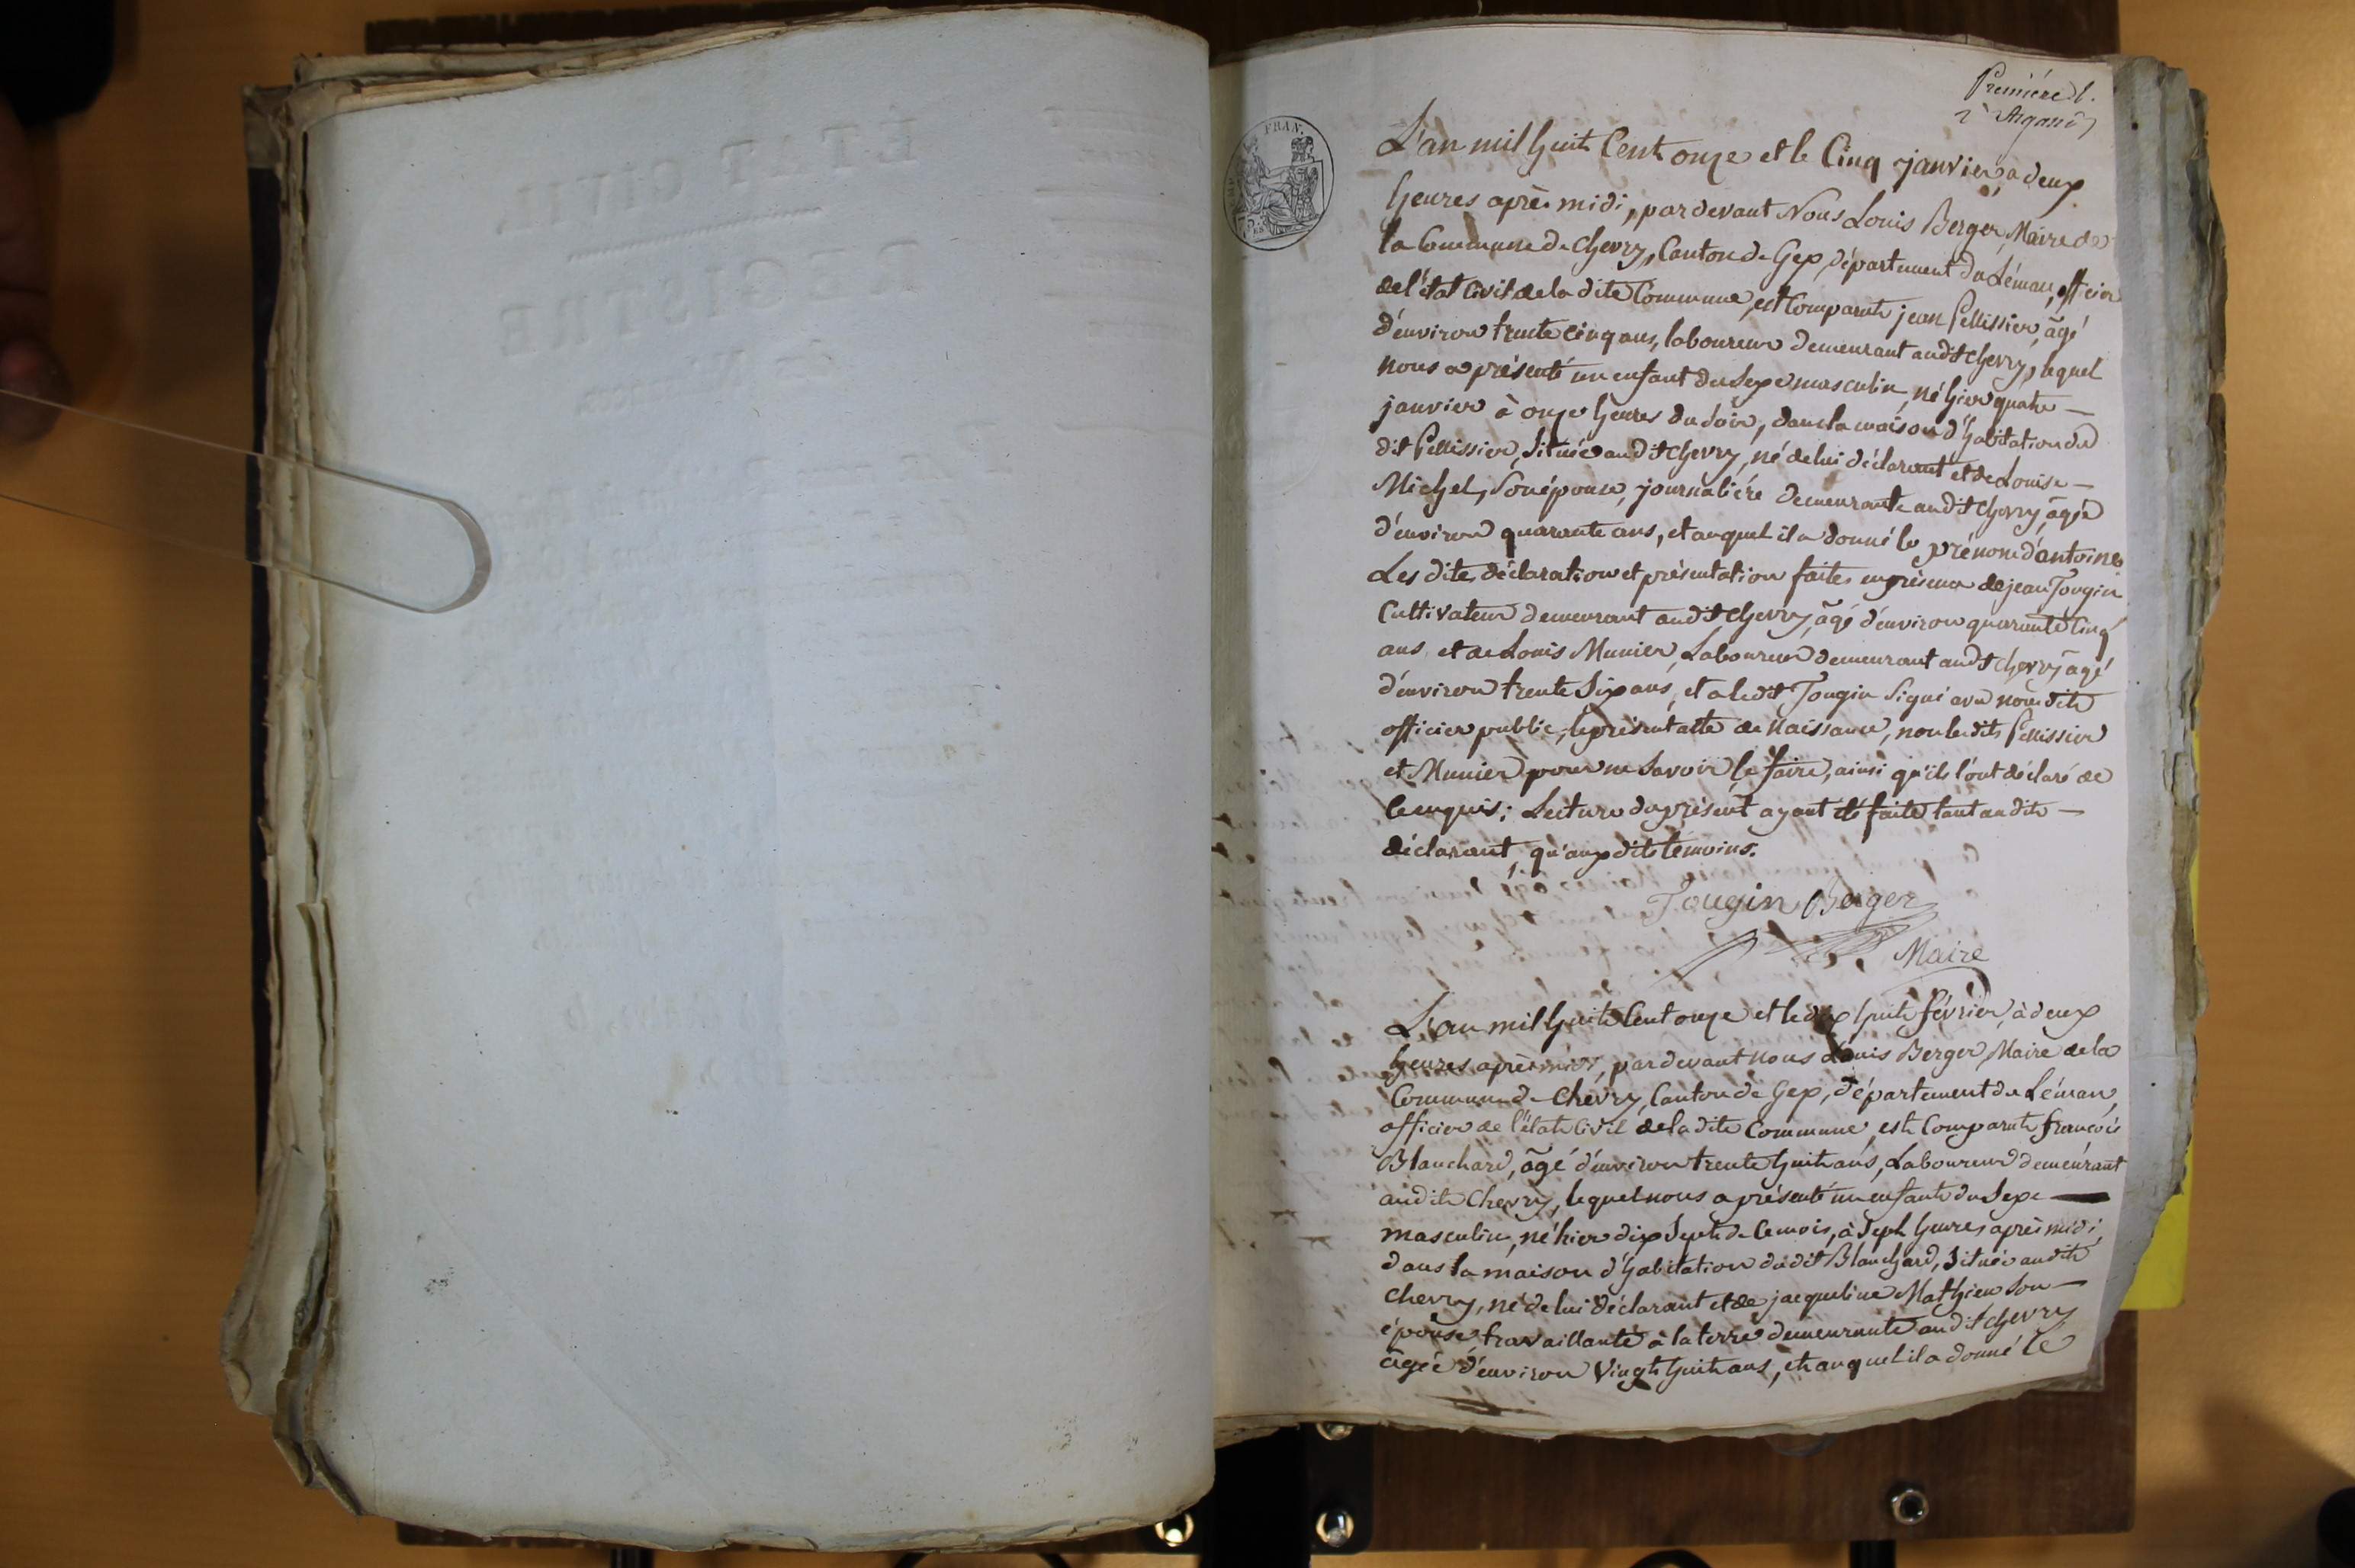 Première f.
L'an mil huit Cent onze et le Cinq janvier, a deux
heures après midi, par devant Nous Louis Berger, Maire de
la Commune de Chevry, Canton de Gex, département du Léman, officier
de l'état Civil de la dite Commune, est Comparut jean Pellissier, âgé
d'environ trente cinq ans, laboureur demeurant audit Chevry, lequel
nous a présenté un enfant du Sexe masculin, né hier quatre —
janvier à onze heures du Soir, dans la maison d'habitation du
dit Pellissier, Située audit Chevry, né de lui déclarant et de Louise —
Michel, Son épouse, journalière demeurante audit Chevry, âgée
d'environ quarante ans, et auquel il a donné le prénom d'antoine
Les dites déclaration et présentation faites en présence de jean Tougin
Cultivateur demeurant audit Chevry, âgé d'environ quarante Cinq
ans, et de Louis Munier, Laboureur demeurant audit Chevry âgé
d'environ trente Six ans, et a ledit Tougin Signé avec nous dit
officier public, le présent acte de Naissance, non les dits Pellissier
et Munier pour ne Savoir le faire, ainsi qu'ils l'ont déclaré de
Ce enquis; Lecture du présent ayant été faite tant au dit —
déclarant, qu'aux dits témoins.
Tougin Berger
Maire
L'an mil huit Cent onze et le dix huit février, à deux
heures après midi, par devant nous Louis Berger, Maire de la
Commune de Chevry, Canton de Gex, département du Léman,
officier de l'état Civil de la dite Commune, est Comparut françois
Blanchard, âgé d'environ trente huit ans, Laboureur demeurant
audit Chevry, lequel nous a présenté un enfant du Sexe —
masculin, né hier dix Sept de Ce mois, à Sept heures après midi,
dans la maison d'habitation dudit Blanchard, Située audit
Chevry, né de lui déclarant et de jacqueline Mathieu Son —
épouse, travaillante à la terre demeurante audit Chevry
âgée d'environ Vingt huit ans, et auquel il a donné le